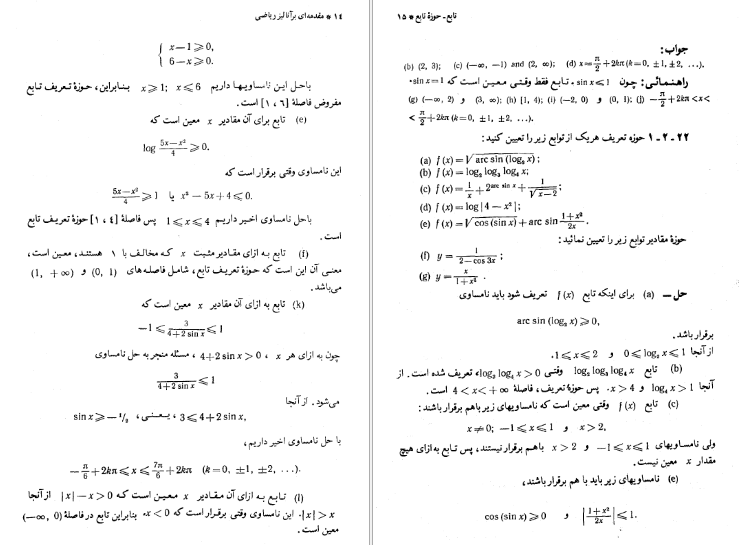 ۱۴ • مقدمه‌ای بر آنالیز ریاضی
{ x−1⩾0,
6−x⩾0.
با حل این نامساویها داریم x⩾1; x⩽6 بنابراین، حوزهٔ تعریف تابع
مفروض فاصلهٔ [۱ ، ۶] است.
(e) تابع برای آن مقادیر x معین است که
log (5x−x²)/4 ⩾ 0.
این نامساوی وقتی برقرار است که
(5x−x²)/4 ⩾ 1 یا x²−5x+4⩽0.
با حل نامساوی اخیر داریم 1⩽x⩽4 پس فاصلهٔ [۱ ، ۴] حوزهٔ تعریف تابع
است.
(f) تابع به ازای مقادیر مثبت x که مخالف با ۱ هستند، معین است،
معنی آن این است که حوزهٔ تعریف تابع، شامل فاصله‌های (0, 1) و (1, +∞)
می‌باشد.
(k) تابع به ازای آن مقادیر x معین است که
−1⩽ 3/(4+2 sin x) ⩽1
چون به ازای هر x ، 4+2 sin x>0 ، مسئله منجر به حل نامساوی
3/(4+2 sin x) ⩽1
می‌شود. از آنجا
3⩽4+2 sin x, یعنی، sin x⩾−1/2 ،
با حل نامساوی اخیر داریم،
−π/6+2kπ⩽x⩽7π/6+2kπ (k=0, ±1, ±2, ...).
(l) تابع به ازای آن مقادیر x معین است که |x|−x>0 از آنجا
|x|>x. این نامساوی وقتی برقرار است که x<0. بنابراین تابع در فاصلهٔ (−∞, 0)
معین است.
تابع ـ حوزهٔ تابع • ۱۵
جواب:
(b) (2, 3); (c) (−∞, −1) and (2, ∞); (d) x=π/2+2kπ (k=0, ±1, ±2, ...),
راهنمائی: چون sin x⩽1 ، تابع فقط وقتی معین است که sin x=1.
(g) (−∞, 2) و (3, ∞); (h) [1, 4); (i) (−2, 0) و (0, 1); (j) −π/2+2kπ<x<
<π/2+2kπ (k=0, ±1, ±2, ...).
۱ـ۲ـ۲۲ حوزه تعریف هریک از توابع زیر را تعیین کنید:
(a) f(x)=√(arc sin (log₂ x));
(b) f(x)=log₂ log₃ log₄ x;
(c) f(x)=1/x+2^(arc sin x)+1/√(x−2);
(d) f(x)=log |4−x²|;
(e) f(x)=√(cos (sin x))+arc sin (1+x²)/2x.
حوزه مقادیر توابع زیر را تعیین نمائید:
(f) y=1/(2−cos 3x);
(g) y=x/(1+x²).
حل ــ (a) برای اینکه تابع f(x) تعریف شود باید نامساوی
arc sin (log₂ x)⩾0,
برقرار باشد.
از آنجا 0⩽log₂ x⩽1 و 1⩽x⩽2.
(b) تابع log₂ log₃ log₄ x وقتی log₃ log₄ x>0، تعریف شده است. از
آنجا log₄ x>1 و x>4. پس حوزهٔ تعریف، فاصلهٔ 4<x<+∞ است.
(c) تابع f(x) وقتی معین است که نامساویهای زیر باهم برقرار باشند:
x≠0; −1⩽x⩽1 و x>2,
ولی نامساویهای −1⩽x⩽1 و x>2 باهم برقرار نیستند، پس تابع به ازای هیچ
مقدار x معین نیست.
(e) نامساویهای زیر باید با هم برقرار باشند،
cos (sin x)⩾0 و |(1+x²)/2x|⩽1.